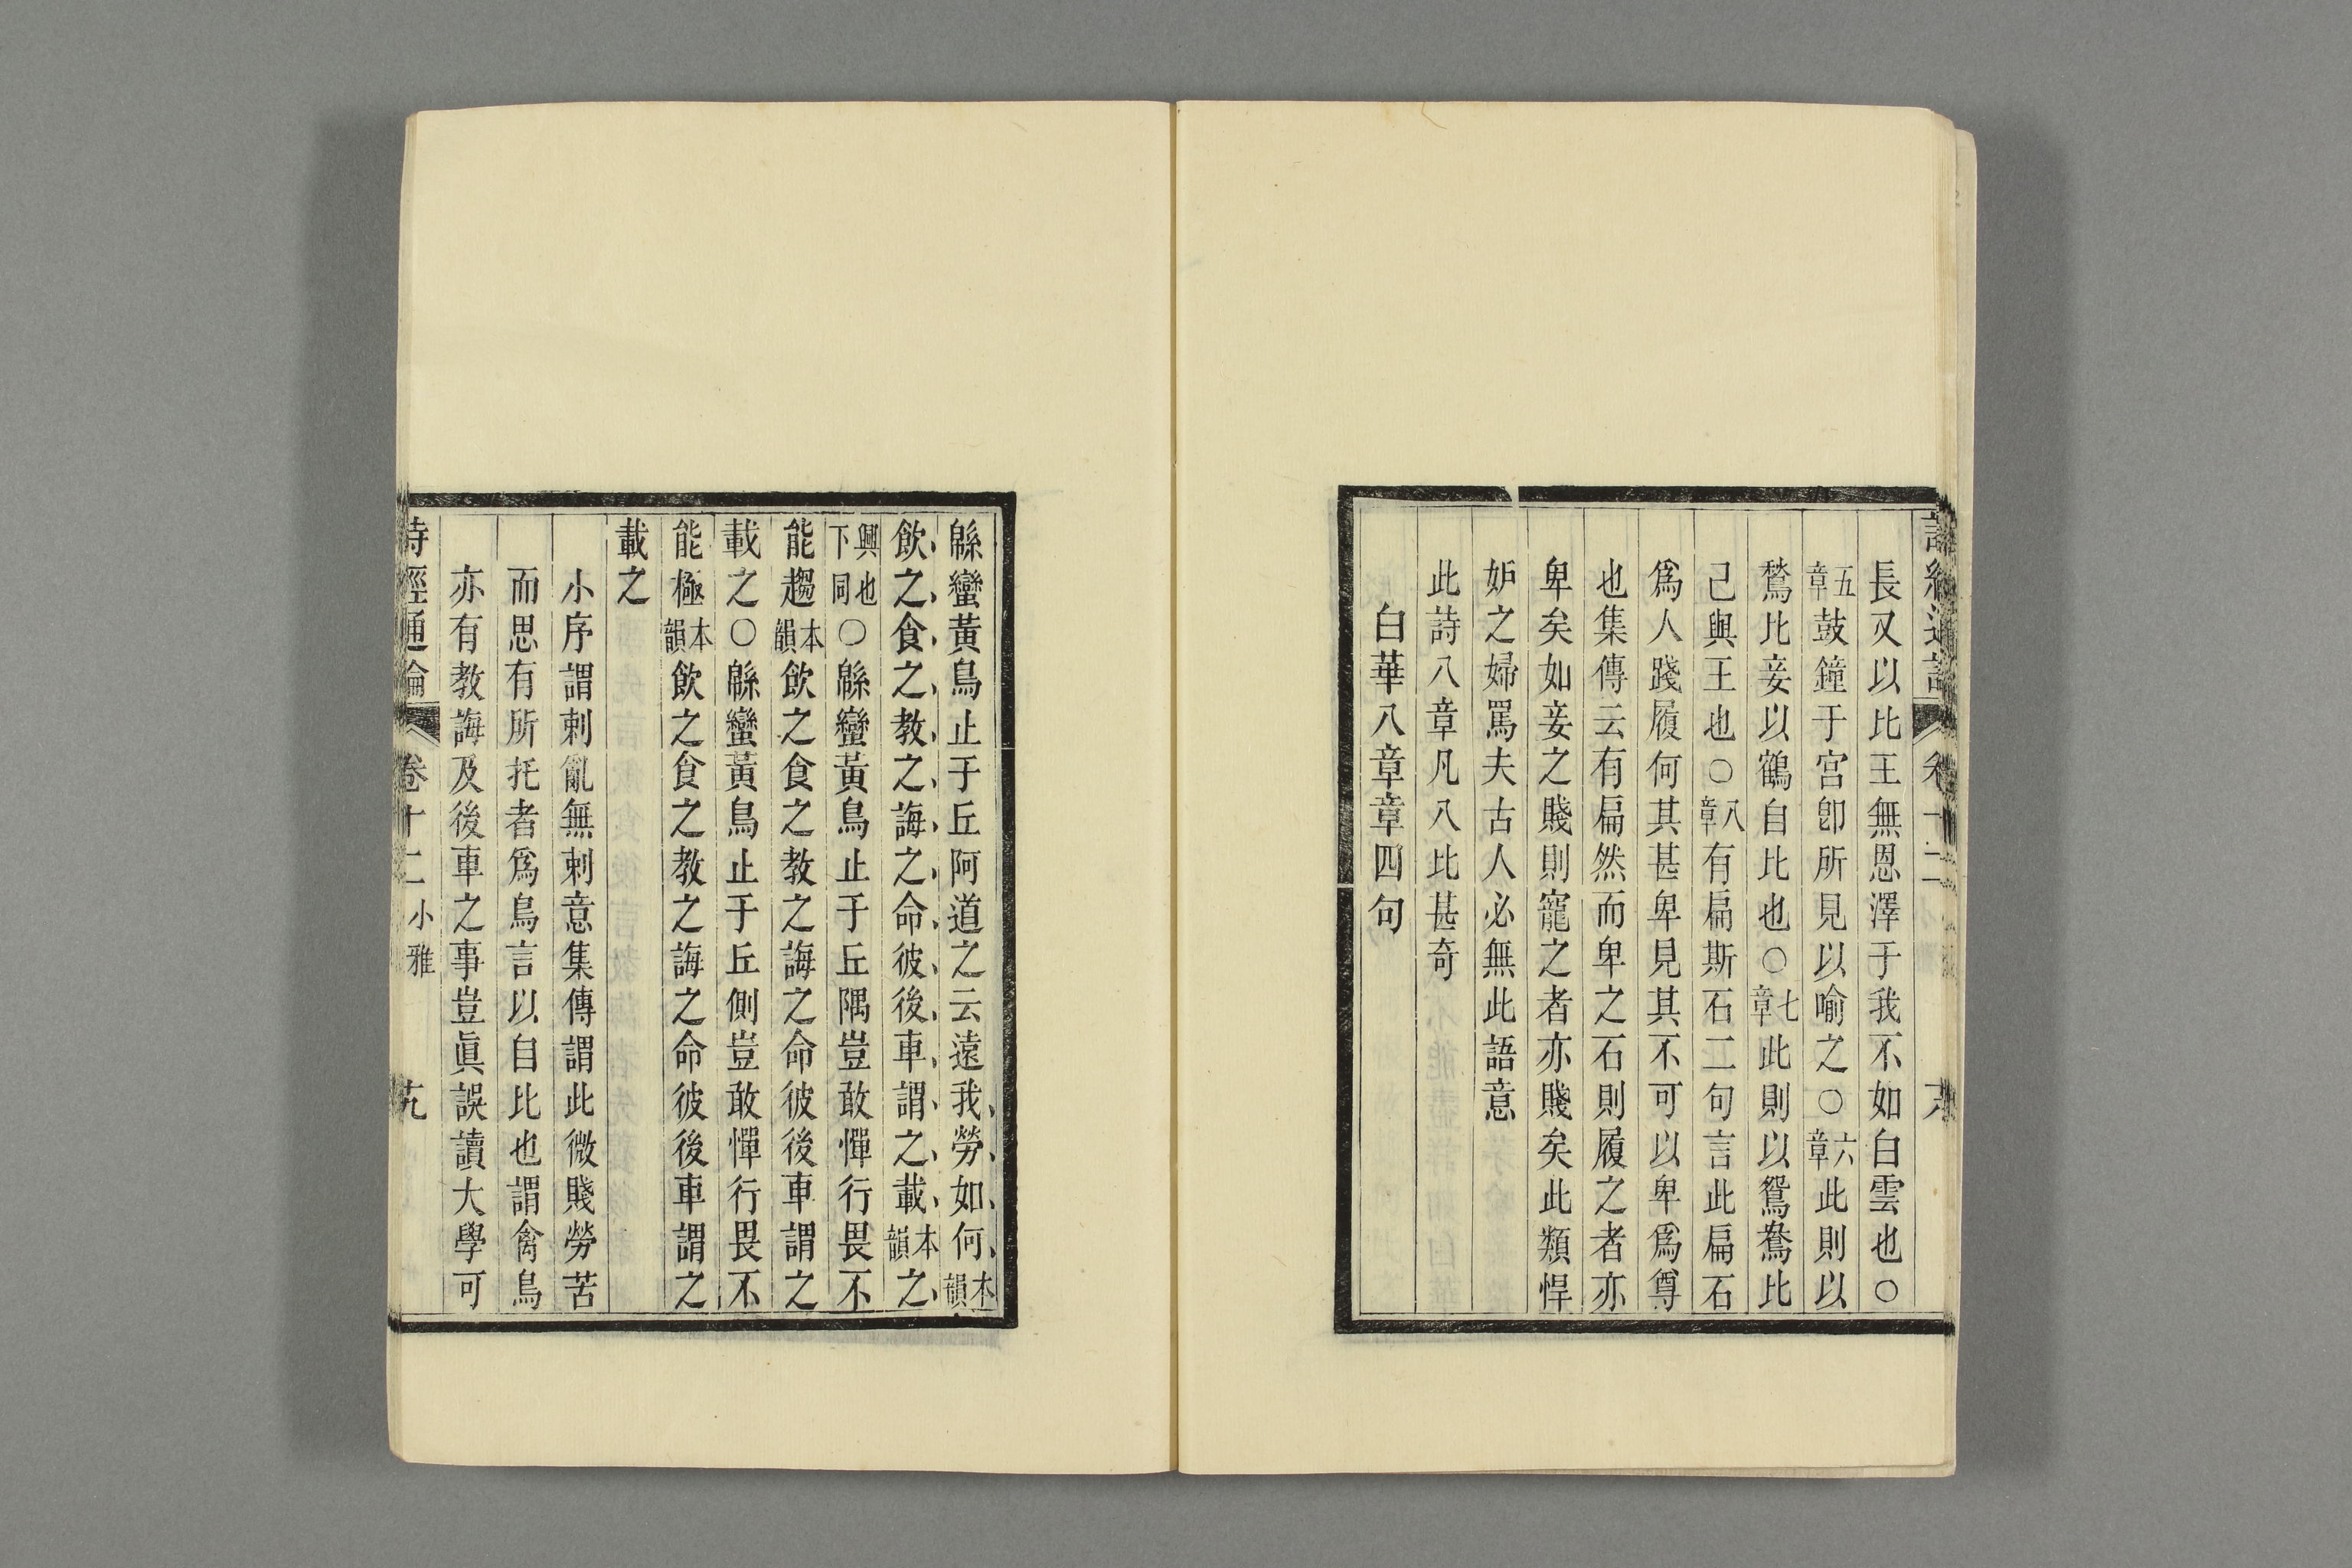 長又以比王無恩澤于我不如白雲也○
五章鼓鐘于宮卽所見以喻之○六章此則以
鶖比妾以鶴自比也○七章此則以鴛鴦比
己與王也○八章有扁斯石二句言此扁石
爲人踐履何其甚卑見其不可以卑爲尊
也集傳云有扁然而卑之石則履之者亦
卑矣如妾之賤則寵之者亦賤矣此類悍
妒之婦罵夫古人必無此語意
此詩八章凡八比甚奇
白華八章章四句
緜蠻黃鳥止于丘阿道之云遠我勞如何本韻
飲之食之教之誨之命彼後車謂之載本韻之
興也下同○緜蠻黃鳥止于丘隅豈敢憚行畏不
能趨本韻飲之食之教之誨之命彼後車謂之
載之○緜蠻黃鳥止于丘側豈敢憚行畏不
能極本韻飲之食之教之誨之命彼後車謂之
載之
小序謂刺亂無刺意集傳謂此微賤勞苦
而思有所托者爲鳥言以自比也謂禽鳥
亦有教誨及後車之事豈眞誤讀大學可
詩經通論 卷十二 小雅